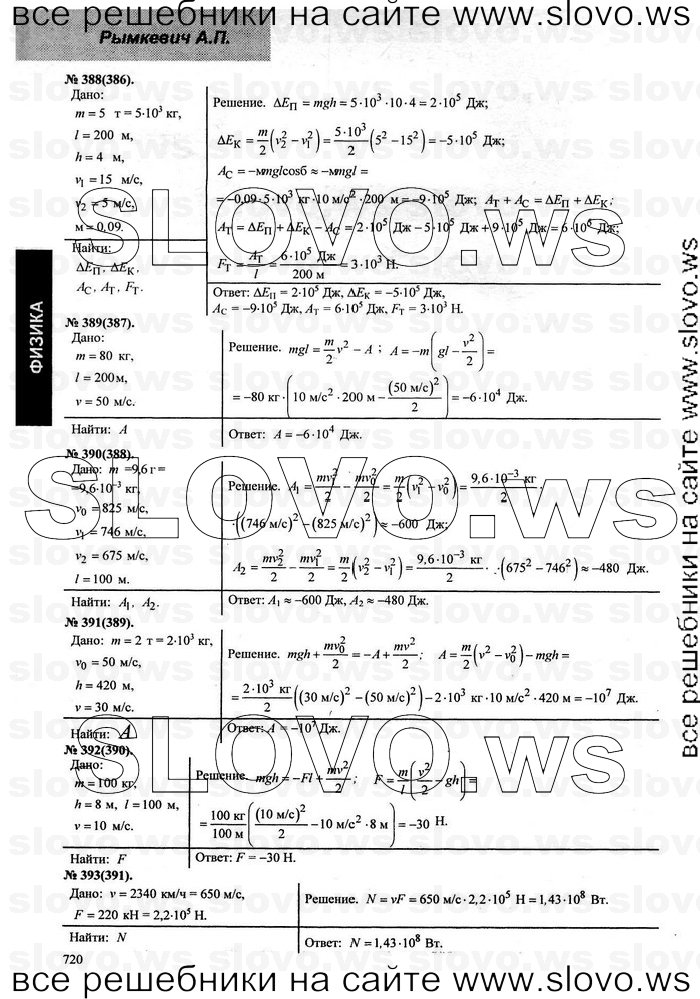 все решебники на сайте www.slovo.ws
Рымкевич А.П.
№ 388(386).
Дано:
m = 5 т = 5·10³ кг,
l = 200 м,
h = 4 м,
v₁ = 15 м/с,
v₂ = 5 м/с,
м = 0,09.
Найти:
ΔEп, ΔEк,
Aс, Aт, Fт.
Решение. ΔEп = mgh = 5·10³·10·4 = 2·10⁵ Дж;
ΔEк = m/2(v₂² – v₁²) = 5·10³/2(5² – 15²) = –5·10⁵ Дж;
Aс = –мmglcosб ≈ –мmgl =
= –0,09·5·10³ кг·10 м/с²·200 м = –9·10⁵ Дж; Aт + Aс = ΔEп + ΔEк;
Aт = ΔEп + ΔEк – Aс = 2·10⁵ Дж – 5·10⁵ Дж + 9·10⁵ Дж = 6·10⁵ Дж;
Fт = Aт/l = 6·10⁵ Дж/200 м = 3·10³ Н.
Ответ: ΔEп = 2·10⁵ Дж, ΔEк = –5·10⁵ Дж,
Aс = –9·10⁵ Дж, Aт = 6·10⁵ Дж, Fт = 3·10³ Н.
ФИЗИКА
№ 389(387).
Дано:
m = 80 кг,
l = 200м,
v = 50 м/с.
Найти: A
Решение. mgl = m/2 v² – A ; A = –m(gl – v²/2) =
= –80 кг·(10 м/с²·200 м – (50 м/с)²/2) = –6·10⁴ Дж.
Ответ: A = –6·10⁴ Дж.
№ 390(388).
Дано: m =9,6 г =
=9,6·10⁻³ кг,
v₀ = 825 м/с,
v₁ = 746 м/с,
v₂ = 675 м/с,
l = 100 м.
Найти: A₁, A₂.
Решение. A₁ = mv₁²/2 – mv₀²/2 = m/2(v₁² – v₀²) = 9,6·10⁻³ кг/2 ·
·((746 м/с)² – (825 м/с)²) ≈ –600 Дж;
A₂ = mv₂²/2 – mv₁²/2 = m/2(v₂² – v₁²) = 9,6·10⁻³ кг/2 ·(675² – 746²) ≈ –480 Дж.
Ответ: A₁ ≈ –600 Дж, A₂ ≈ –480 Дж.
№ 391(389).
Дано: m = 2 т = 2·10³ кг,
v₀ = 50 м/с,
h = 420 м,
v = 30 м/с.
Найти: A
Решение. mgh + mv₀²/2 = –A + mv²/2; A = m/2(v² – v₀²) – mgh =
= 2·10³ кг/2((30 м/с)² – (50 м/с)²) – 2·10³ кг·10 м/с²·420 м = –10⁷ Дж.
Ответ: A = –10⁷ Дж.
№ 392(390).
Дано:
m = 100 кг,
h = 8 м, l = 100 м,
v = 10 м/с.
Найти: F
Решение. mgh = –Fl + mv²/2; F = m/l(v²/2 – gh) =
= 100 кг/100 м((10 м/с)²/2 – 10 м/с²·8 м) = –30 Н.
Ответ: F = –30 Н.
№ 393(391).
Дано: v = 2340 км/ч = 650 м/с,
F = 220 кН = 2,2·10⁵ Н.
Найти: N
Решение. N = vF = 650 м/с·2,2·10⁵ Н = 1,43·10⁸ Вт.
Ответ: N = 1,43·10⁸ Вт.
720
SLOVO.ws
SLOVO.ws
SLOVO.ws
все решебники на сайте www.slovo.ws
все решебники на сайте www.slovo.ws